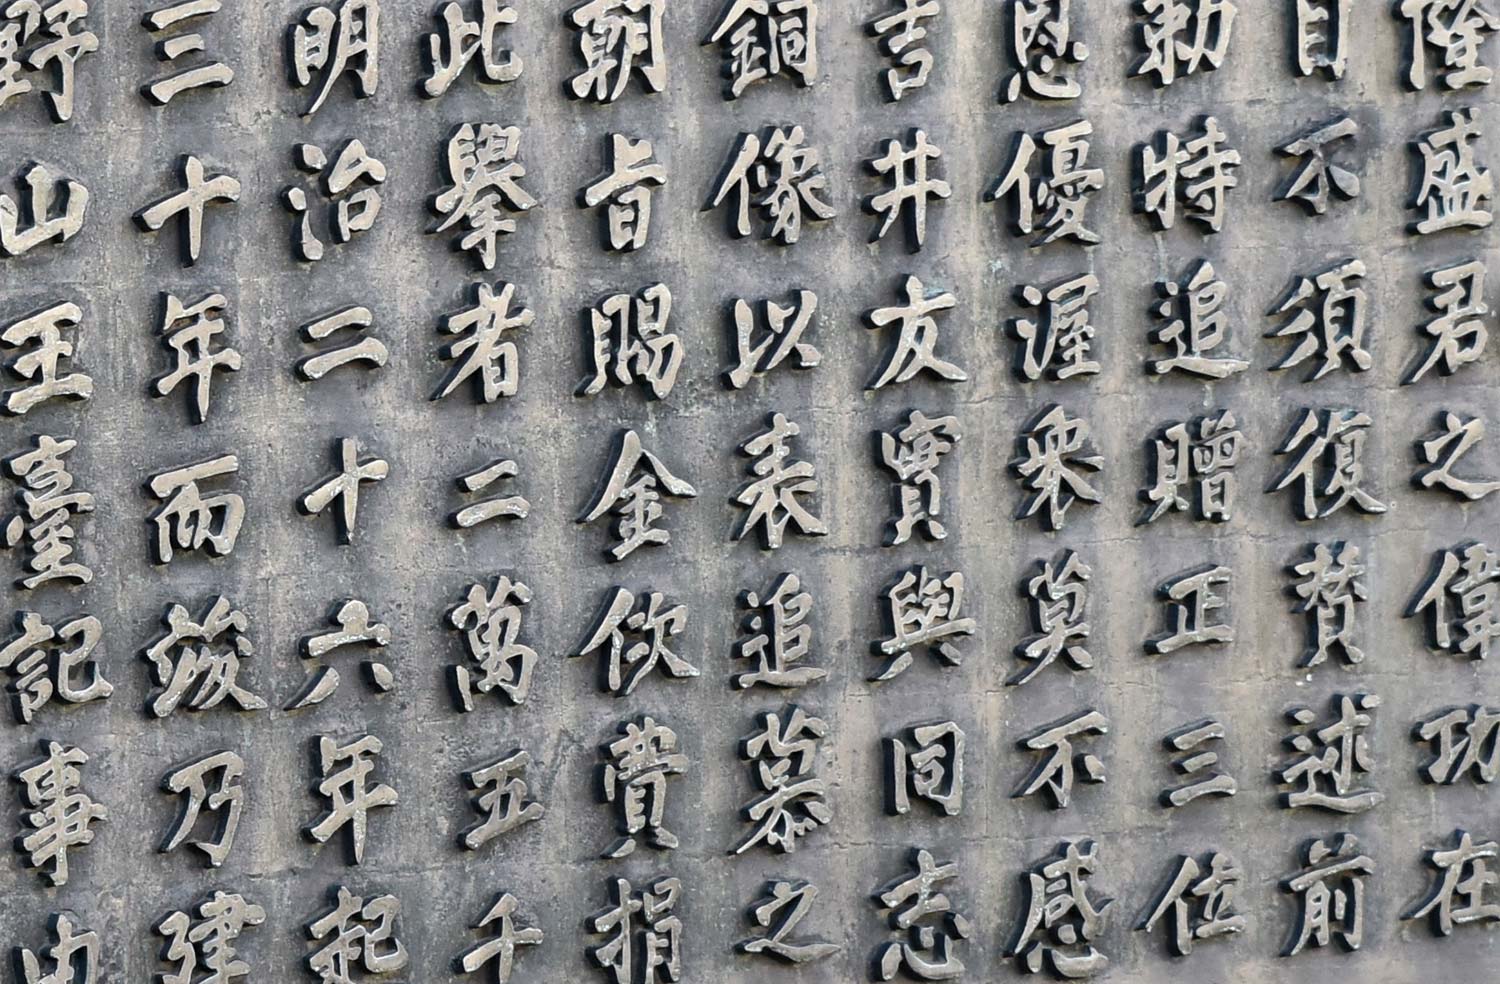 隆盛君之偉功在
目不須復贊述前
勅特追贈正三位
恩優渥衆莫不感
吉井友實與同志
銅像以表追慕之
朝旨賜金欽費捐
此擧者二萬五千
明治二十六年起
三十年而竣乃建
野山王臺記事由